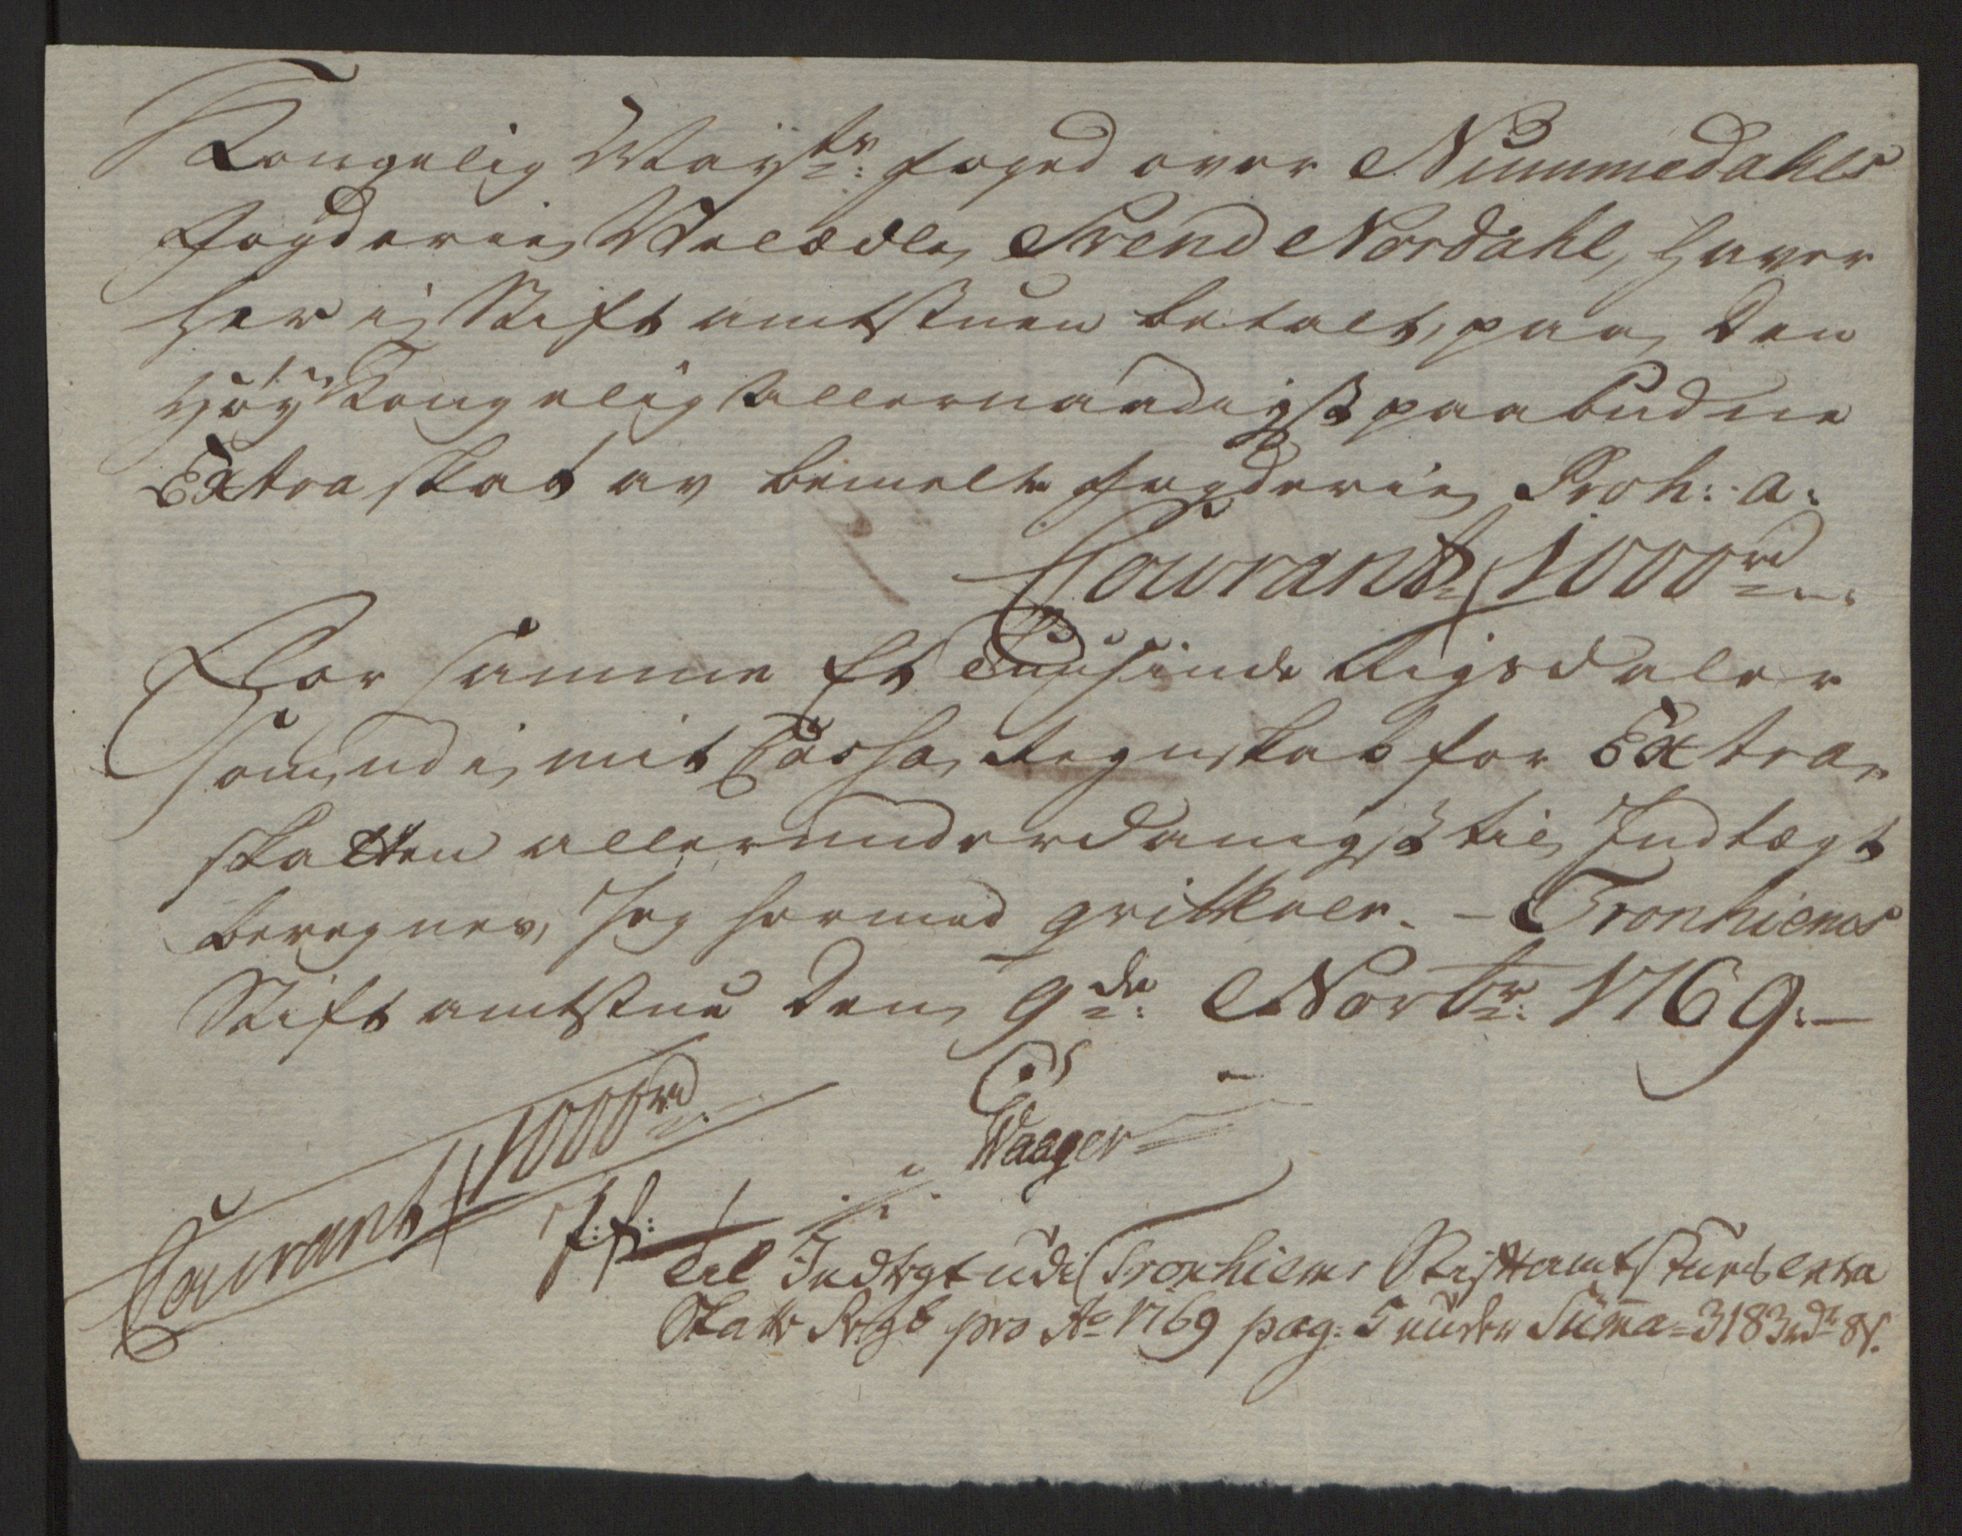 Kongelig Maÿsts: foged over Nummedahls
Fogderie, Velædle, Svend Nordahl, haver
her i Stiftamtstuen betalt, paa den
Høÿ Kongelig Allernaadigst paabudne
Extra skat av bemelte fogderie, Proh: a:
Courant 1000rd
For samme Et Tuusinde Rigsdaler
som udi mit Cassa Regnskab for Extra
skatten allerunderdanigst til Indtægt
beregnes, Jeg hermed qvitterer. – Tronhiems
Stiftamtstue den 9de: Novbr: 1769. –
Waager
Courant 1000rd
til Indtægt udi Tronhiems Stiftamtstues extra
Skatte Rgb pro Ao 1769 pag: 5 under Suma 3183rdr 8s.